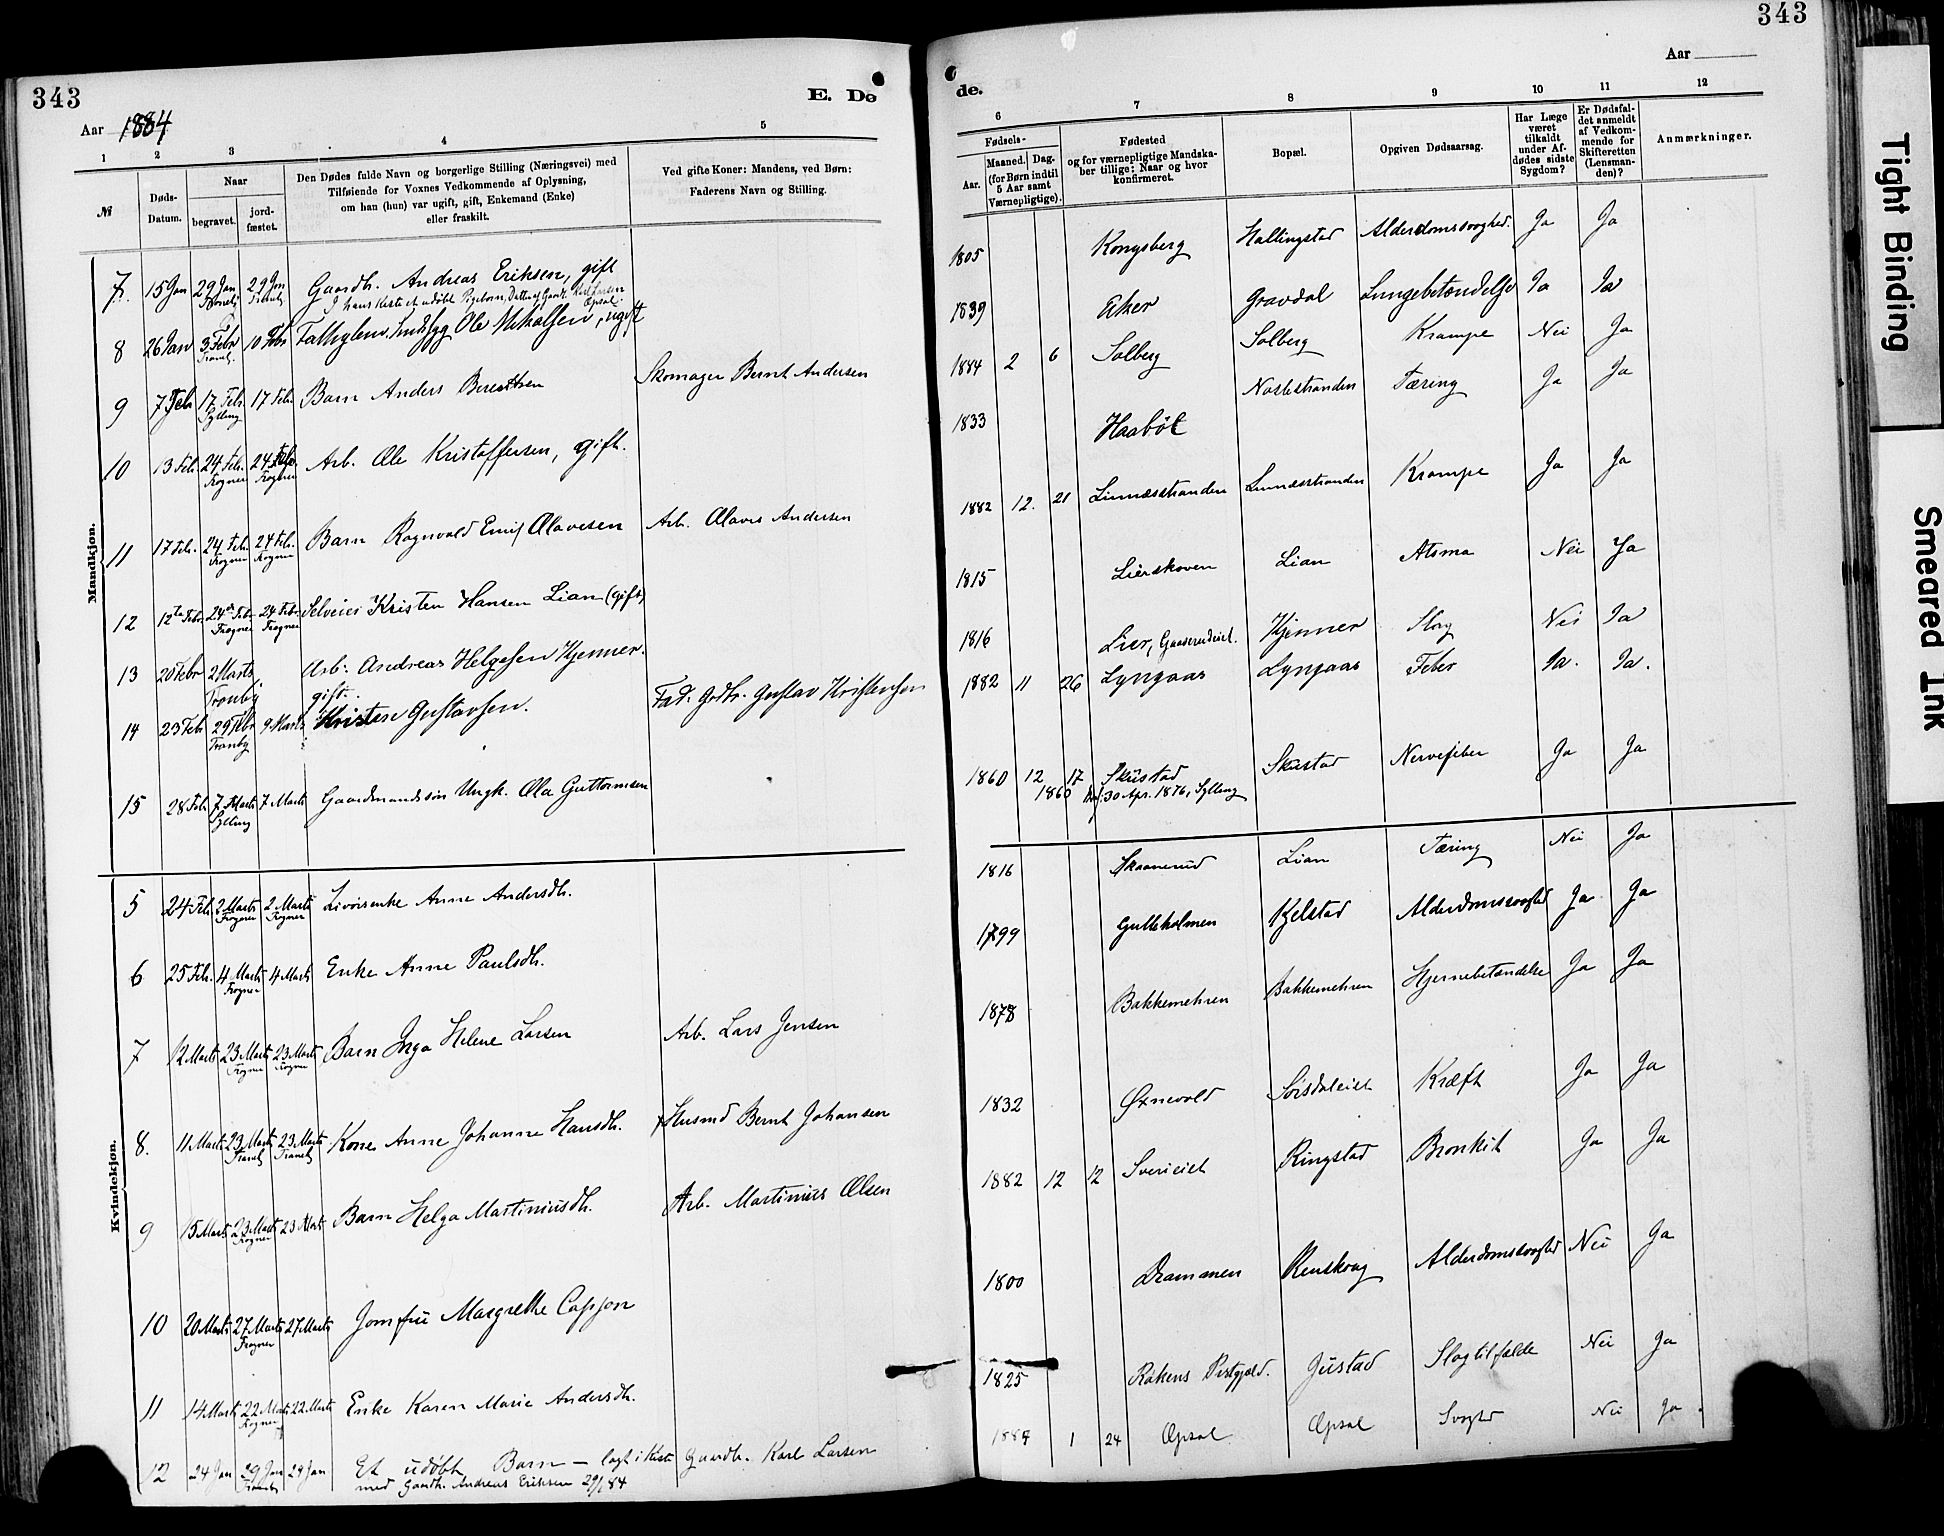 343
Aar 1884
E. Dø
1 2 3 4 5
№
Døds-Datum.
Naar
begravet.
jord-fæstet.
Den Dødes fulde Navn og borgerlige Stilling (Næringsvei) med
Tilføiende for Voxnes Vedkommende af Oplysning,
om han (hun) var ugift, gift, Enkemand (Enke)
eller fraskilt.
Ved gifte Koner: Mandens, ved Børn:
Faderens Navn og Stilling.
Mandkjøn.
7. 15 Jan 29 Jan 29 Jan Gaardb. Andreas Eriksen, gift
Tranby Tranby I hans Kiste et udøbt Pigebarn, Datter af Gaardb. Karl Larsen
Opsal.
8 26 Jan 3 Febr 10 Febr Fattiglem, Ole Nikolsen, ugift
Tranby
9 7 Feb 17 Feb. 17 Feb. Barn Anders Berentsen Skomager Bernt Andersen
Sylling
10 13 Feb. 24 Feb. 24 Feb. Arb. Ole Kristoffersen, gift.
Frogner Frogner
11 17 Feb. 24 Feb. 24 Feb. Barn Ragnvald Emil Olavesen Arb. Olaves Andersen
Frogner Frogner
12 12te Febr 24de Febr 24 Febr Selveier Kristen Hansen Lian (gift)
Frogner Frogner
13 20 Febr 2 Marts Arb. Andreas Helgesen Kjenner.
Tranby gift.
14 23 Febr 29 Febr 9 Marts Kristen Gustavsen. Fad. Grdbr. Gustav Kristensen
Tranby
15 28 Feb. 7 Marts 7 Marts Gaardmandssøn Ungk. Ole Guttormsen
Sylling
Kvindekjøn.
5 24 Feb. 2 Marts 2 Marts Anne Andersdtr.
Frogner Frogner
6 25 Feb. 4 Marts 4 Marts Enke Anne Paulsdtr.
Frogner
7 12 Marts 23 Marts 23 Marts Barn Inga Helene Larsen Arb. Lars Jensen
Frogner Frogner
8. 11 Marts 23 Marts 23 Marts Kone Anne Johanne Hansdtr. Husmd Bernt Johansen
Tranby Tranby
9 15 Marts 23 Marts 23 Marts Barn Helga Martiniusdtr. Arb. Martinius Olsen
Frogner
10 20 Marts 27 Marts 27 Marts Jomfru Margrethe
Frogner
11 14 Marts 22 Marts 22 Marts Enke Karen Marie Andersdtr.
Frogner
12 24 Jan 29 Jan 29 Jan Et udøbt Barn — lagt i Kiste Gaardb. Karl Larsen
Tranby med Gaardb. Andreas Eriksen 29/1 84
343
Aar
de.
6 7 8 9 10 11 12
Fødsels-
Aar.
Maaned. Dag.
(for Børn indtil
5 Aar samt
Værnepligtige).
Fødested
og for værnepligtige Mandska-
ber tillige: Naar og hvor
konfirmeret.
Bopæl.
Opgiven Dødsaarsag.
Har Læge
været
tilkaldt
under Af-
dødes sidste
Sygdom?
Er Dødsfal-
det anmeldt
af Vedkom-
mende for
Skifteretten
(Lensman-
den)?
Anmærkninger.
1805 Kongsberg Hallingstad Alderdomssvaghed. Ja Ja
1839 Eker Gravdal Lungebetændelse Ja Ja
1884 2 6 Solberg Solberg Krampe Nei Ja
1833 Haabøl Nøstestranden Tæring Ja Ja
1882 12. 21 Linnæsstranden Linnæsstranden Krampe Ja Ja
1815 Lierskoven Lian Atsma Nei Ja
1816 Lier, Kjenner Slag Nei Ja
1882 11 26 Lyngaas Lyngaas Feber Ja. Ja.
1860 12 17 Skustad Skustad Nervefeber Ja Ja
1860 30 Apr. 1876, Sylling
1816 Skaanerud Lian Tæring Nei Ja
1799 Gulleholmen Kjelstad Alderdomssvaghed Ja Ja
1878 Bakkemehren Bakkemehren Hjernebetændelse Ja Ja
1832 Øxnevold Sørsdaleiet Kræft Ja Ja
1882 12 12 Svereiet Ringstad Bronkit Ja Ja
1800 Drammen Renskoug Alderdomssvaghed Nei Ja
1825 Røkens Prstgjæld. Justad Slagtilfælde Nei Ja
1884 1 24 Opsal Opsal Svaghed Nei Ja.
Tight Binding
Smeared Ink